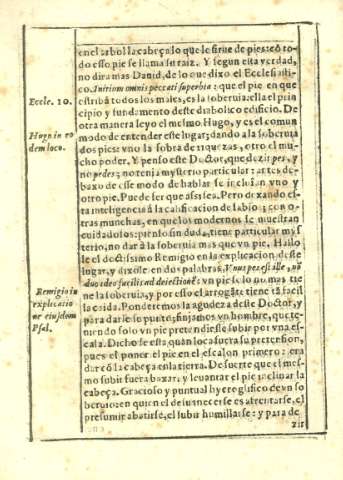 en el arbol la cabeça lo que le sirue de pies: cõ to-
do esso pie se llama su raiz. Y segun esta verdad,
no dira mas Dauid, de lo que dixo el Ecclesiasti-
Eccle. 10.
co. Initium omnis peccati superbia: que el pie en que
estribã todos los males, es la soberuia: ella el prin
cipio y fundamento deste diabolico edificio. De
otra manera leyo el mesmo Hugo, y es el comun
Hugo in eo
dem loco.
modo de entender este lugar; dando a la soberuia
dos pies: vno la sobra de riquezas, otro el mu-
cho poder. Y penso este Doctor, que dezir pes, y
no pedes; no tenia mysterio particular: antes de-
baxo de esse modo de hablar se incluian vno y
otro pie. Puede ser que assi sea. Pero dexando es-
ta inteligencia a la calificacion de sabio; con o-
tras munchas, en que los modernos se muestran
cuidadosos: pienso sin duda, tiene particular mys
terio, no dar à la soberuia mas que vn pie. Hallo
le el doctissimo Remigio en la explicacion deste
lugar, y dixole en dos palabras, Vnus pes est ille, nõ
duo: ideo facilis ad deiectionē: vn pie solo no mas tie
Remigio in
explicatio
ne eiusdem
Psal.
ne la soberuia, y por esso el arrogãte tiene tã facil
la caida. Ponderemos la agudeza deste Doctor, y
para darle su punto; finjamos vn hombre, que te-
niendo solo vn pie pretendiesse subir por vna es-
cala. Dicho se esta quan loca su pretension,
pues el poner el pie en el escalon primero: era
dar cõ la cabeça en la tierra. De suerte que el mes-
mo subir fuera baxar: y leuantar el pie inclinar la
cabeça. Gracioso y puntual hyeroglifico de vn so
beruio: en quien el desuanecerse es afrentarse, el
presumir abatirse, el subir humillarse: y para de
zir